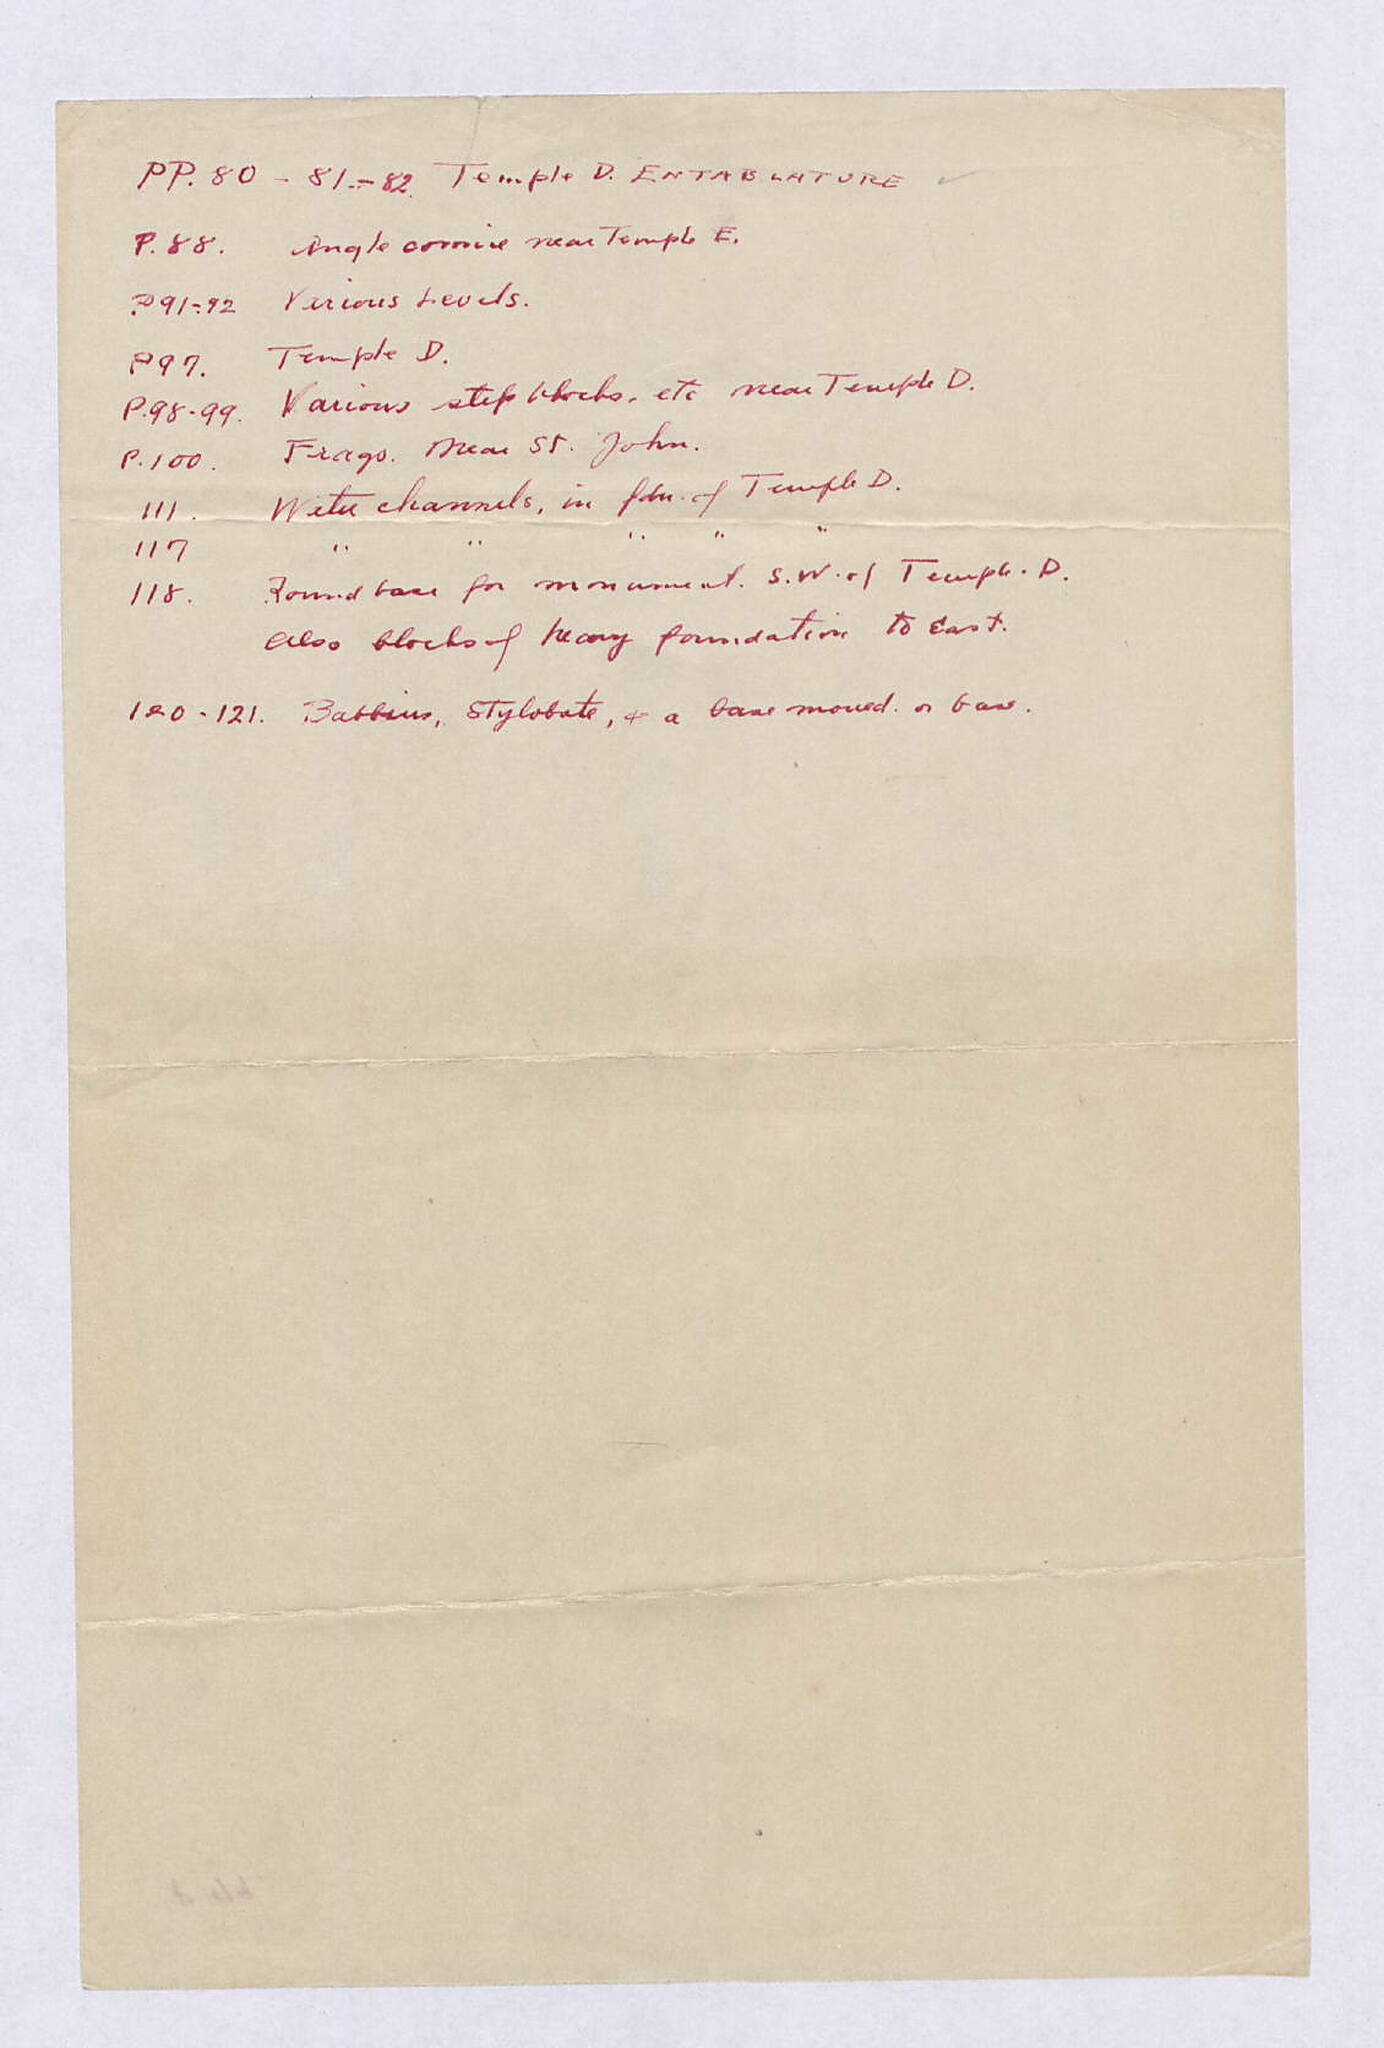 PP. 80 - 81.-82. Temple D. ENTABLATURE ✓
P. 88. Angle cornice near Temple E.
P91-92 Various Levels.
P97. Temple D.
P.98-99. Various step blocks, etc near Temple D.
P.100. Frags. Near St. John.
111. Water channels, in fdn. of Temple D.
117 " " " " "
118. Round base for monument. S.W. of Temple. D.
Also blocks of heavy foundation to East.
120-121. Babbius, Stylobate, & a base moued. or base.